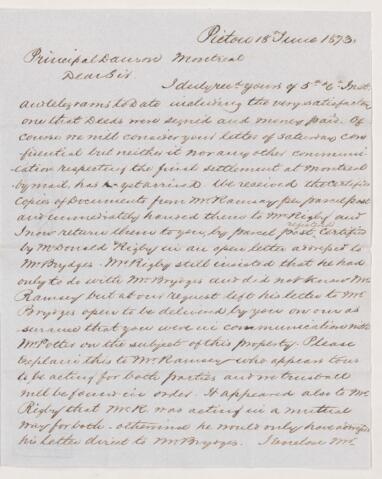 Pictou 18 June 1873.
Principal Dawson Montreal
Dear Sir
I duly recd yours of 5th & 6th Inst.
and telegrams to date including the very satisfactory
one that Deeds were signed and money paid. Of
course we will consider your letter of Saturday con
fidential but neither it nor any other communi
cation respecting the final settlement at Montreal
by mail, has as yet arrived. We received the Certified
Copies of Documents from Mr Ramsay per parcel post
and immediately handed them to Mr Rigby and
I now return them to you, by parcel post registered Certified
by McDonald & Rigby in an open letter addressed to
Mr Brydges. Mr Rigby still insisted that he had
only to do with Mr Brydges and did not know Mr
Ramsay but at our request left his letter to Mr
Brydges open to be delivered by you on our as
surance that you were in communication with
Mr Potter on the subject of this property. Please
explain this to Mr Ramsay who appears to us
to be acting for both parties and we trust all
will be found in order. It appeared also to Mr
Rigby that Mr R. was acting in a mutual
way for both - otherwise he would only have addressed
his letter direct to Mr Brydges. I enclose Mr